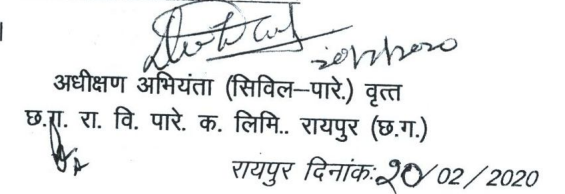 अधीक्षण अभियंता (सिविल–पारे.) वृत्त
छ.ग. रा. वि. पारे. क. लिमि.. रायपुर (छ.ग.)
रायपुर दिनांक: 20/02/2020